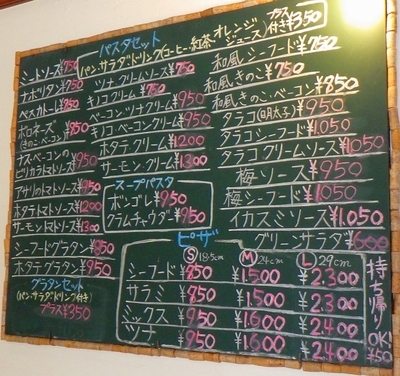 パスタセット
パン・サラダ・ドリンク(コーヒー・紅茶・オレンジジュース)付き プラス¥350
ミートソース¥750
ナポリタン¥750
ペスカトーレ¥850
ボロネーズ(きのこ・ベーコン)¥850
ナス・ベーコンの
ピリカラトマトソース¥950
アサリのトマトソース¥950
ホタテトマトソース¥1200
サーモントマトソース¥1300
シーフードグラタン¥850
ホタテグラタン¥950
グラタンセット
(パン・サラダ・ドリンク付き)
プラス¥350
ツナクリームソース¥750
キノコクリーム¥750
ベーコン・ツナクリーム¥950
キノコ・ベーコンクリーム¥950
ホタテクリーム¥1200
サーモンクリーム¥1300
スープパスタ
ボンゴレ¥950
クラムチャウダー¥950
和風シーフード¥750
和風きのこ¥750
和風きのこ・ベーコン¥850
タラコ(明太子)¥950
タラコシーフード¥1.050
タラコクリームソース¥1.050
梅ソース¥950
梅シーフード¥1.050
イカスミソース¥1.050
グリーンサラダ¥600
ピザ
Ⓢ18.5cm Ⓜ24cm Ⓛ29cm
シーフード ¥850 ¥1.500 ¥2.300
サラミ ¥850 ¥1.500 ¥2.300
ミックス ¥950 ¥1.600 ¥2.400
ツナ ¥950 ¥1.600 ¥2.400
持ち帰OK!
¥50